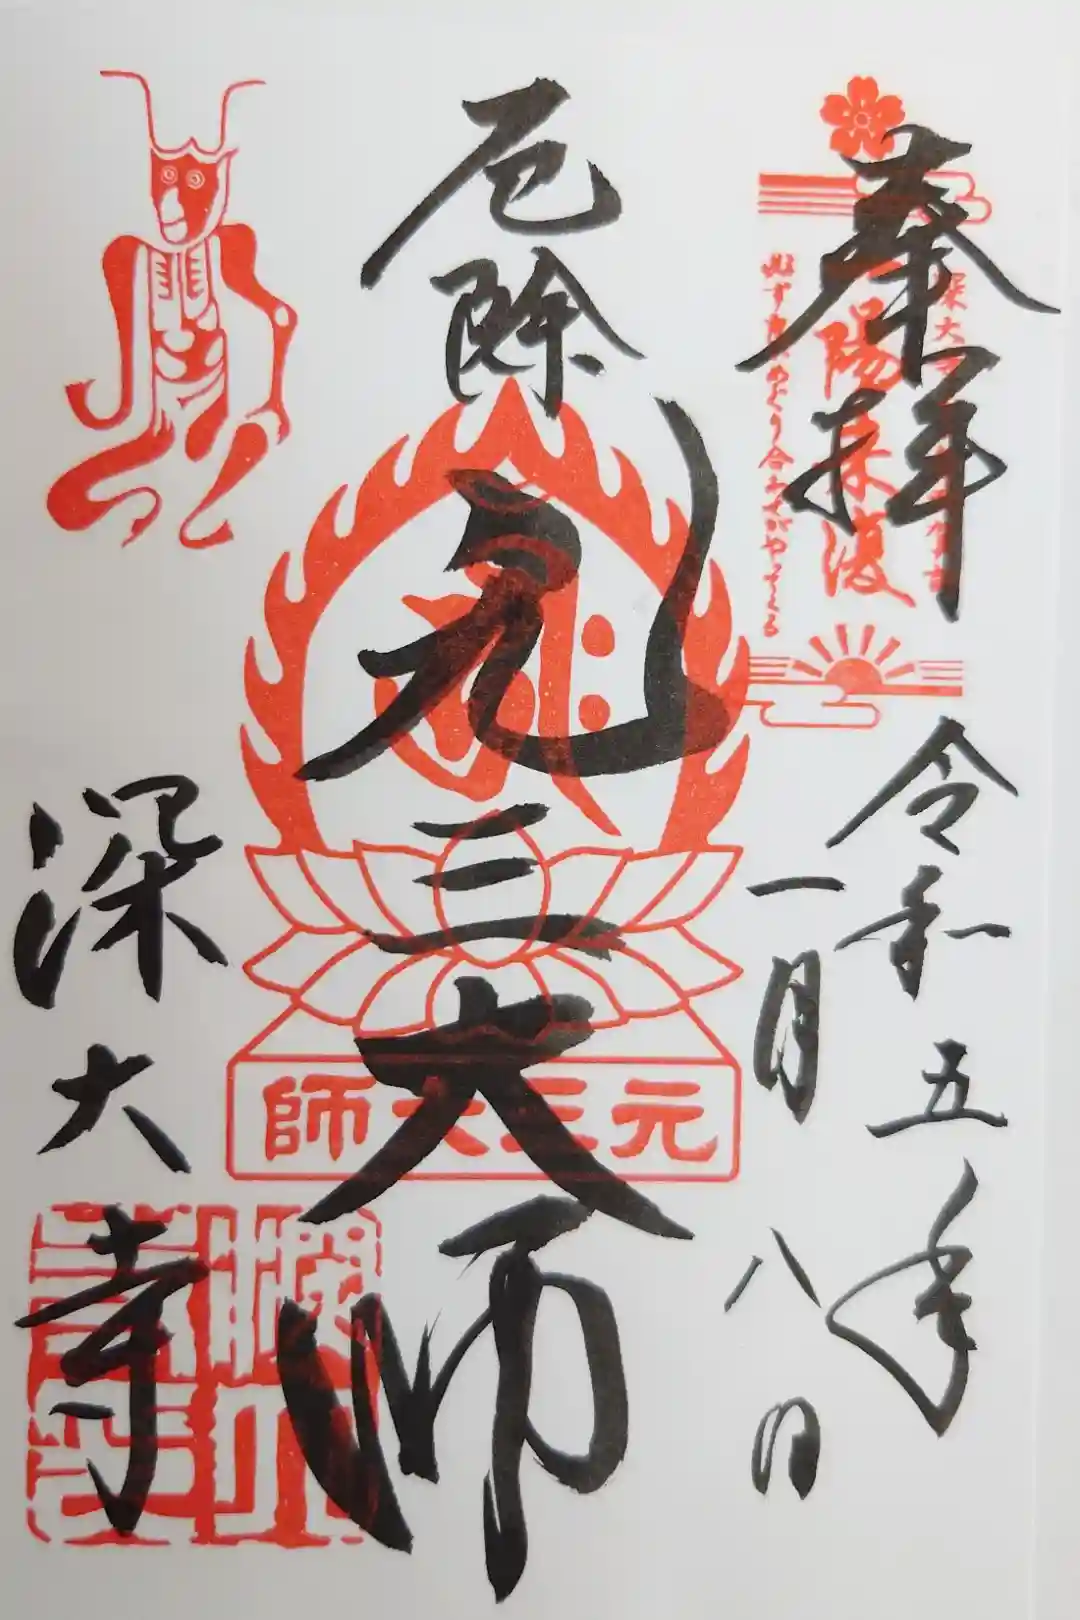 奉拝
一陽来復
必ずまためぐり合わせがやってくる
令和五年
一月八日
厄除
元三大師
元三大師
深大寺